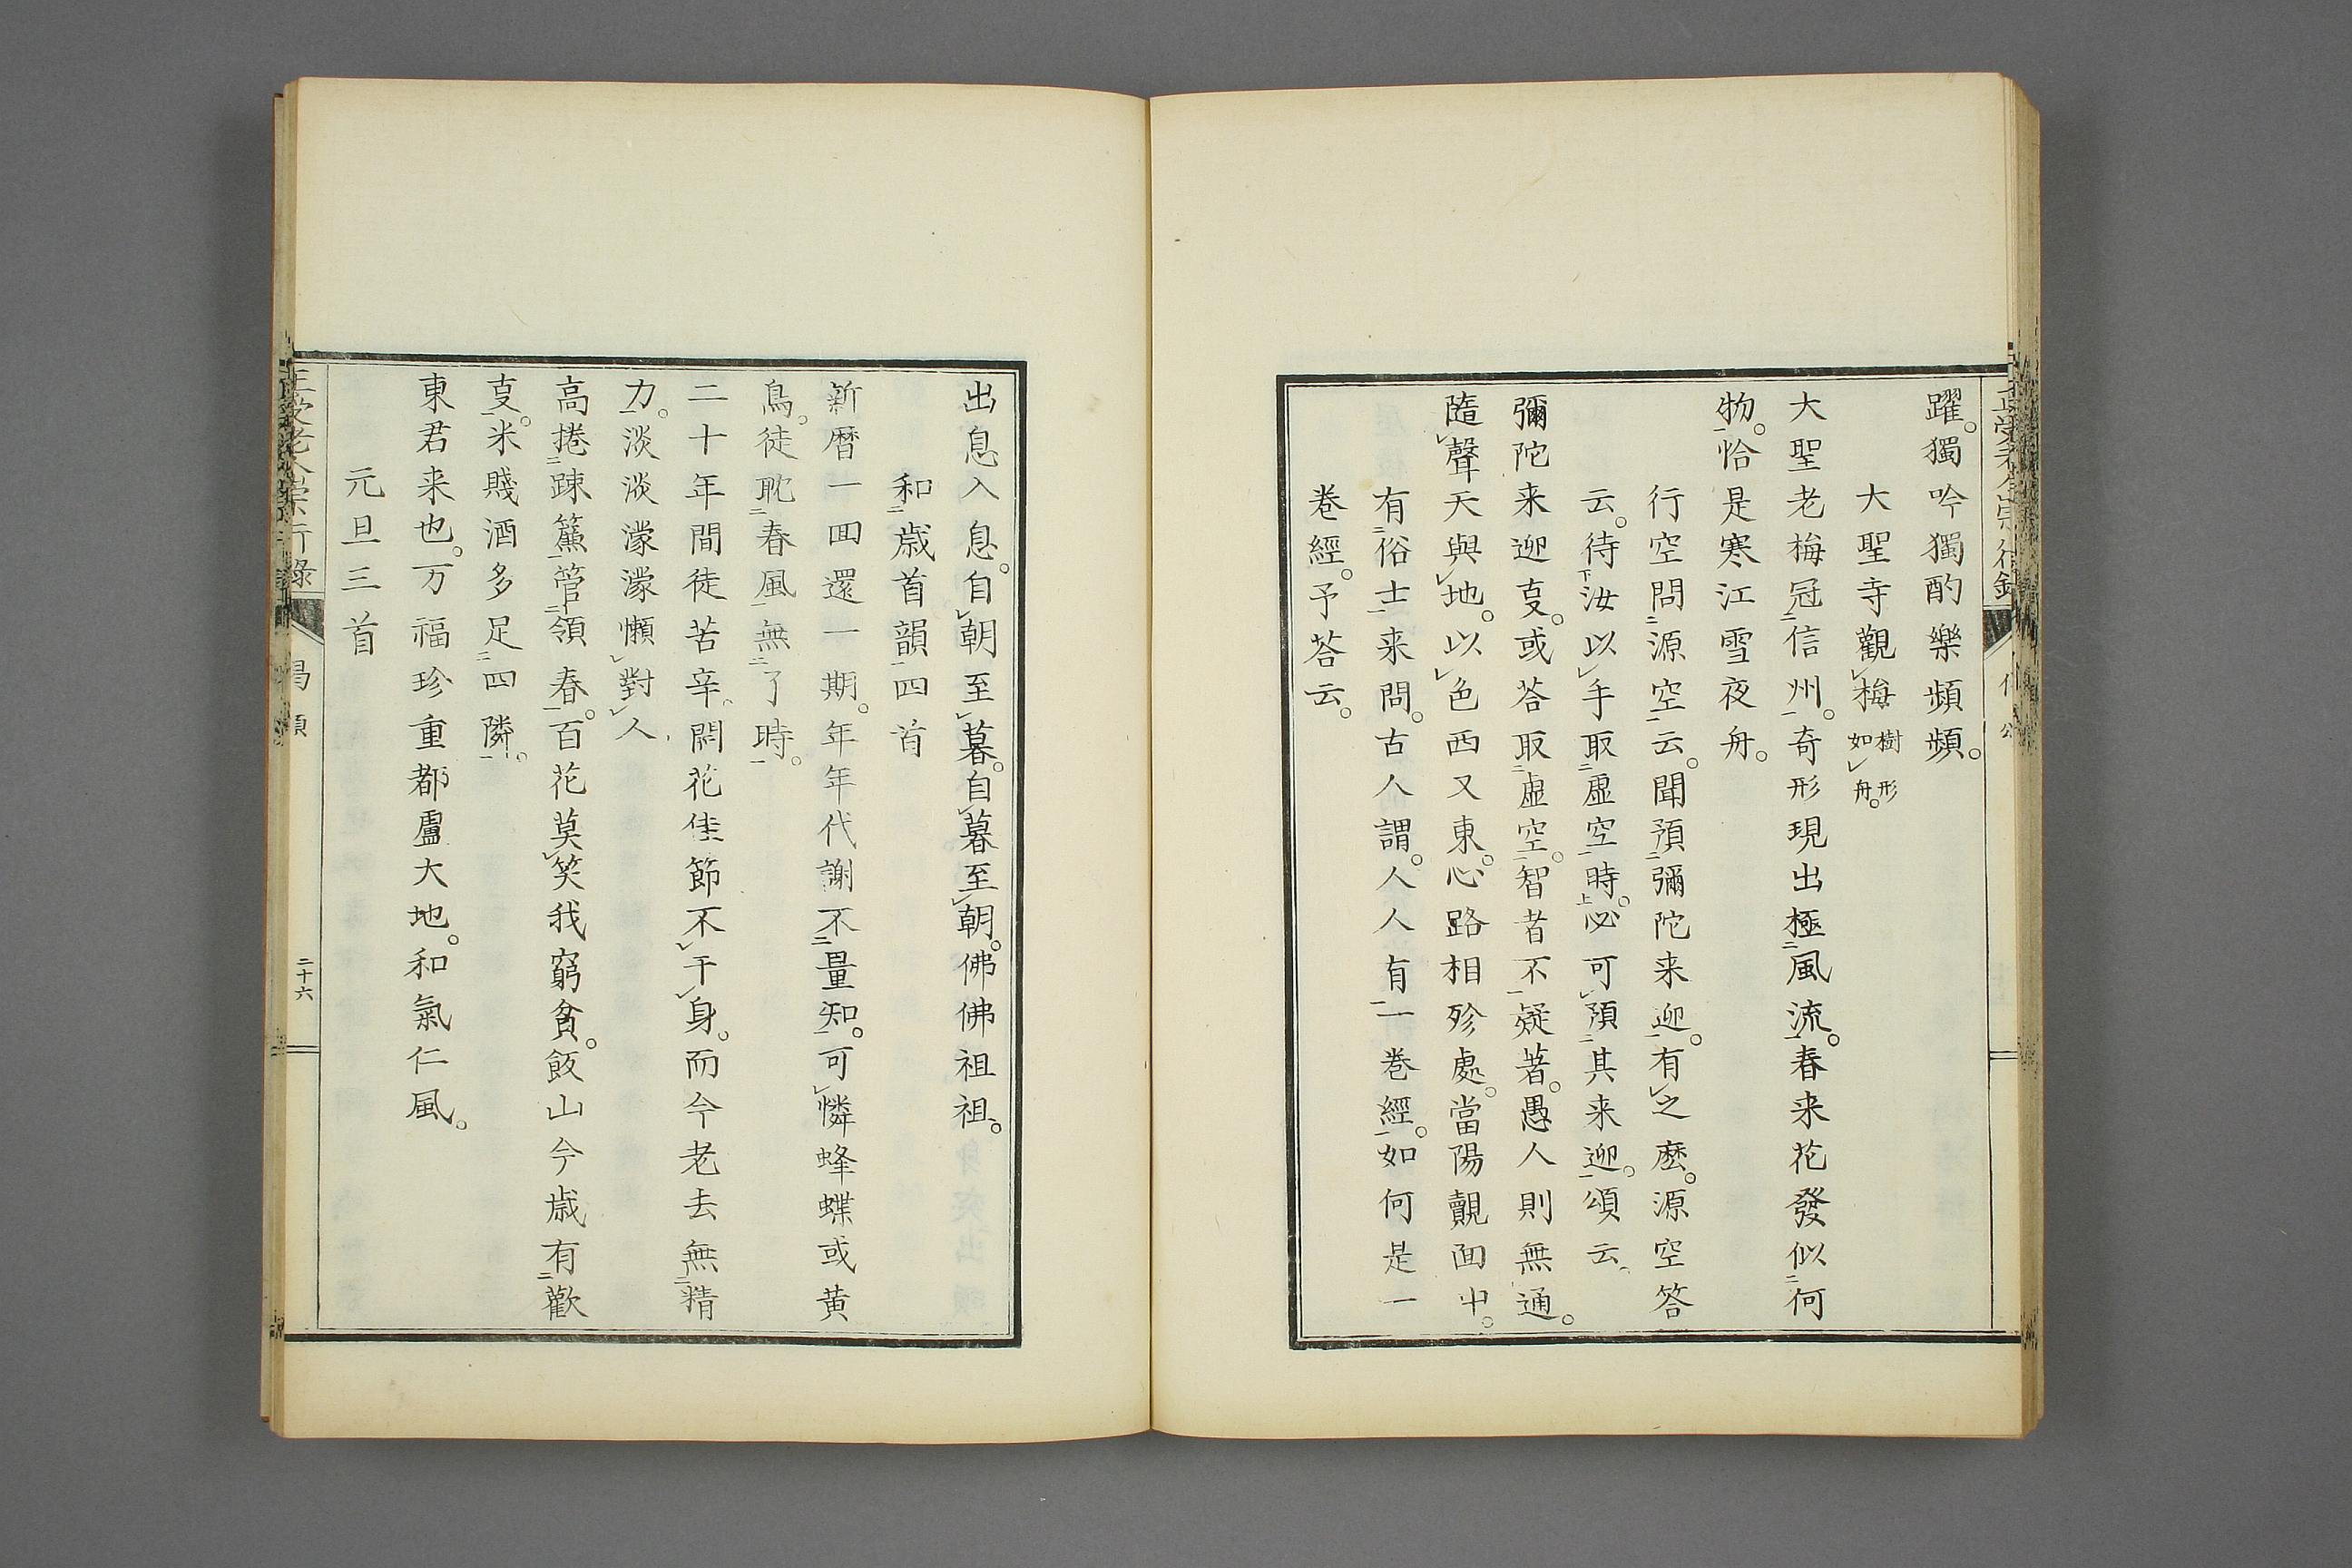 躍。獨吟獨酌樂頻頻。
大聖寺觀梅 樹形如舟。
大聖老梅冠信州。奇形現出極風流。春来花發似何
物。恰是寒江雪夜舟。
行空問源空云。聞預彌陀来迎。有之麽。源空答
云。待汝以手取虛空時。必可預其来迎。頌云。
彌陀来迎㕝。或荅取虛空。智者不疑著。愚人則無通。
隨聲天與地。以色西又東。心路相殄處。當陽覿面中。
有俗士来問。古人謂。人人有一巻經。如何是一
巻經。予荅云。
出息入息。自朝至暮。自暮至朝。佛佛祖祖。
和歳首韻四首
新暦一回還一期。年年代謝不量知。可憐蜂蝶或黄
鳥。徒耽春風無了時。
二十年間徒苦辛。閙花佳節不干身。而今老去無精
力。淡淡濛濛懶對人
高捲踈簾管領春。百花莫笑我窮貧。飯山今歳有歡
㕝。米賤酒多足四隣。
東君来也。万福珍重都盧大地。和氣仁風。
元旦三首
二十六